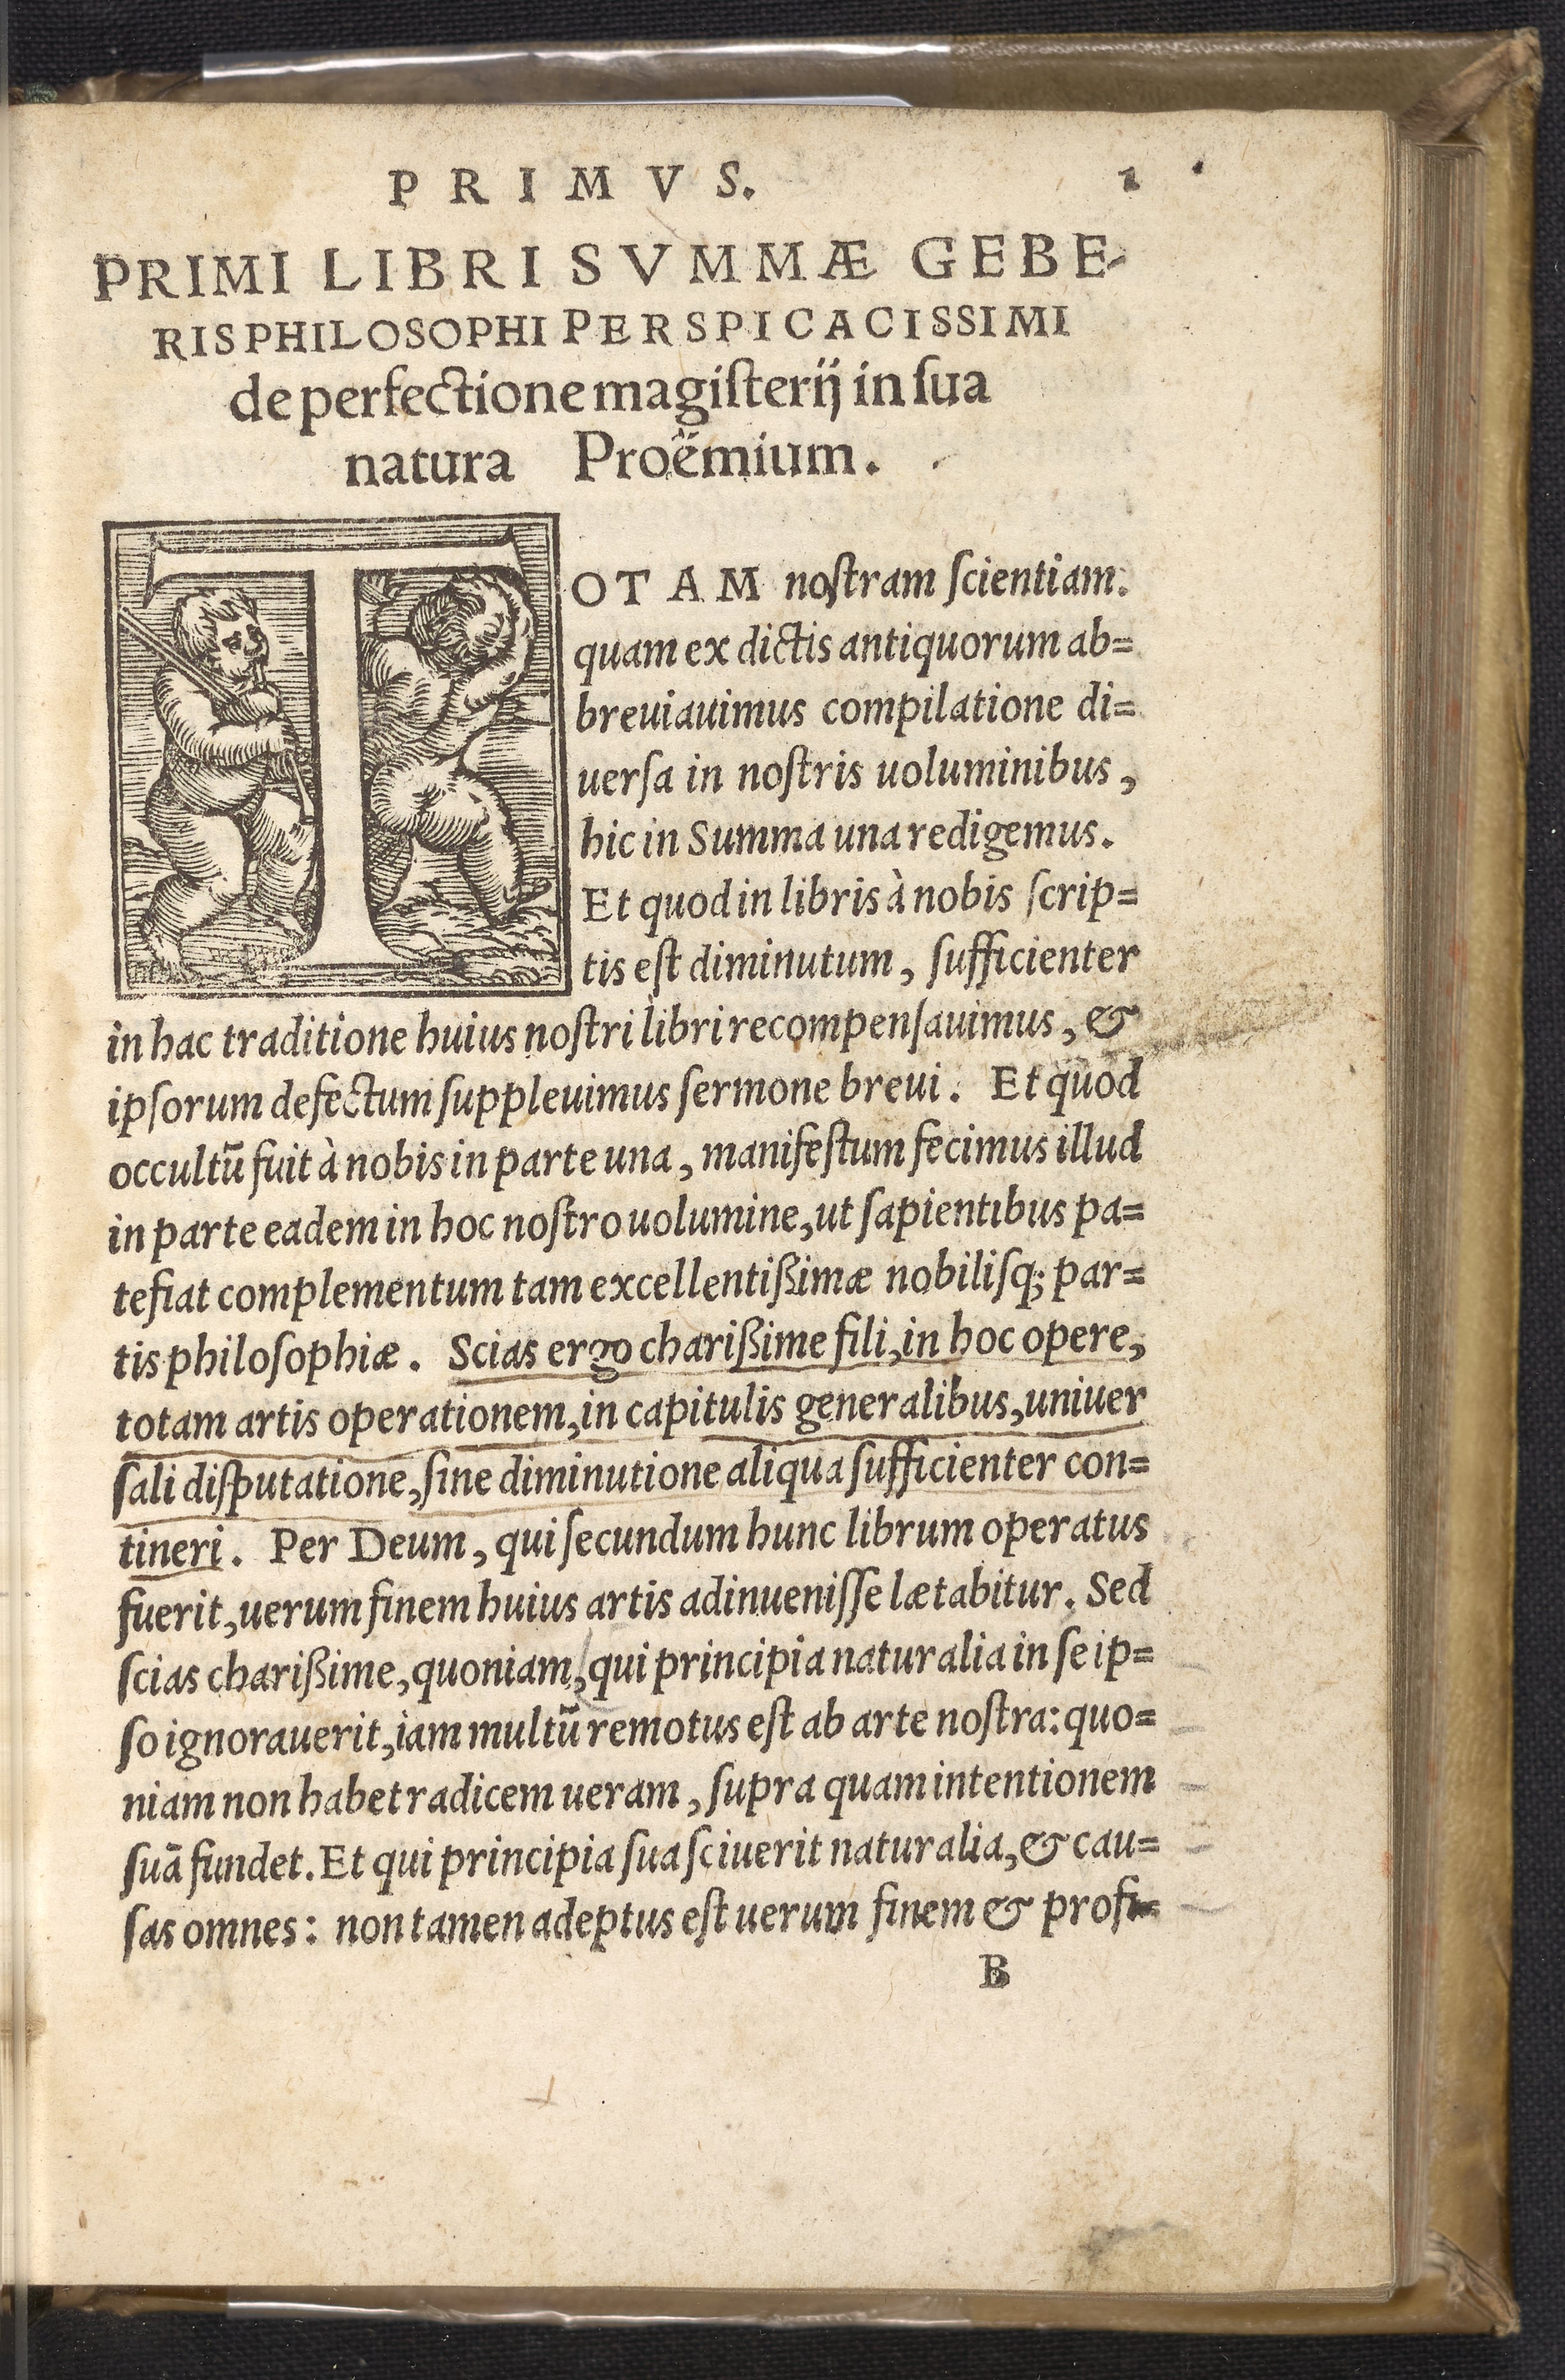 PRIMVS. 1
PRIMI LIBRI SVMMÆ GEBE-
RIS PHILOSOPHI PERSPICACISSIMI
de perfectione magiſterij in ſua
natura Proëmium.
TOTAM noſtram ſcientiam.
quam ex dictis antiquorum ab=
breuiauimus compilatione di=
uerſa in noſtris uoluminibus,
hic in Summa una redigemus.
Et quod in libris à nobis ſcrip=
tis eſt diminutum, ſufficienter
in hac traditione huius noſtri libri recompenſauimus, &
ipſorum defectum ſuppleuimus ſermone breui. Et quod
occultū fuit à nobis in parte una, manifeſtum fecimus illud
in parte eadem in hoc noſtro uolumine, ut ſapientibus pa=
tefiat complementum tam excellentißimæ nobilisq; par=
tis philoſophiæ. Scias ergo charißime fili, in hoc opere,
totam artis operationem, in capitulis generalibus, uniuer
ſali diſputatione, ſine diminutione aliqua ſufficienter con=
tineri. Per Deum, qui ſecundum hunc librum operatus
fuerit, uerum finem huius artis adinueniſſe lætabitur. Sed
ſcias charißime, quoniam, qui principia naturalia in ſe ip=
ſo ignorauerit, iam multū remotus eſt ab arte noſtra: quo=
niam non habet radicem ueram, ſupra quam intentionem
ſuā fundet. Et qui principia ſua ſciuerit naturalia, & cau=
ſas omnes: non tamen adeptus eſt uerum finem & profi=
B